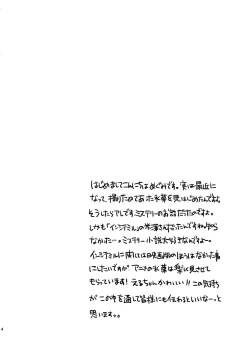 はじめましてこんにちは めぐみです。実は最近に
なって、撮りためてあった氷菓を見はじめたんですよ
そうしたらアレですミステリーのお話だったのですよ。
しかも「インシテミル」の米澤さんだったんですね知ら
なかった…。ミステリー小説大好きなんですよ〜
インシテミルに関しては映画版のほうはなかった事
にしたいですが アニメの氷菓は楽しく見させて
もらっています! えるちゃんかわいい!! この気持ち
が この本を通して皆様にも伝わるといいな〜と
思います。